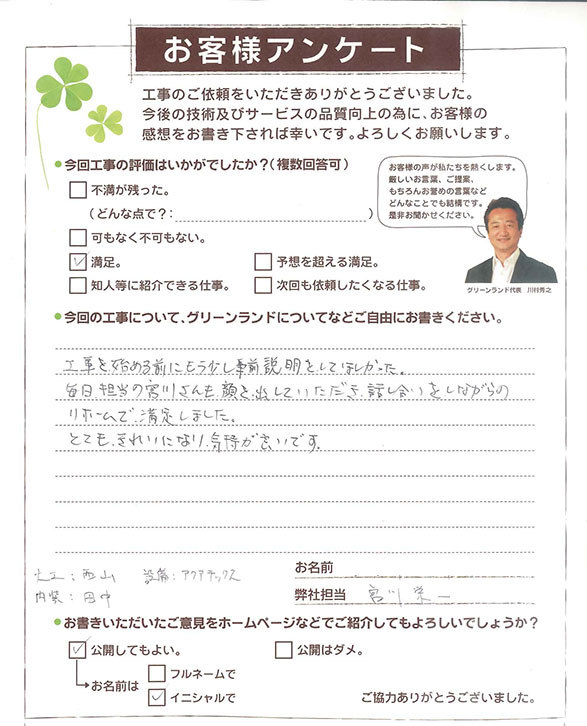 お客様アンケート
工事のご依頼をいただきありがとうございました。
今後の技術及びサービスの品質向上の為に、お客様の
感想をお書き下されば幸いです。よろしくお願いします。
今回工事の評価はいかがでしたか？（複数回答可）
不満が残った。
（どんな点で？：　）
可もなく不可もない。
満足。
予想を超える満足。
知人等に紹介できる仕事。
次回も依頼したくなる仕事。
お客様の声が私たちを熱くします。
厳しいお言葉、ご提案、
もちろんお誉めの言葉など
どんなことでも結構です。
是非お聞かせください。
グリーンランド代表　川村秀之
今回の工事について、グリーンランドについてなどご自由にお書きください。
工事を始める前にもう少し事前説明をしてほしかった。
毎日、担当の宮川さんも、顔を、出していただき、話し合いをしながらの
リホームで、満足しました。
とても、きれいになり、気持が良いです。
大工：西山　設備：アクアテックス
内装：田中
お名前
弊社担当　宮川栄一
お書きいただいたご意見をホームページなどでご紹介してもよろしいでしょうか？
公開してもよい。
公開はダメ。
お名前は
フルネームで
イニシャルで
ご協力ありがとうございました。